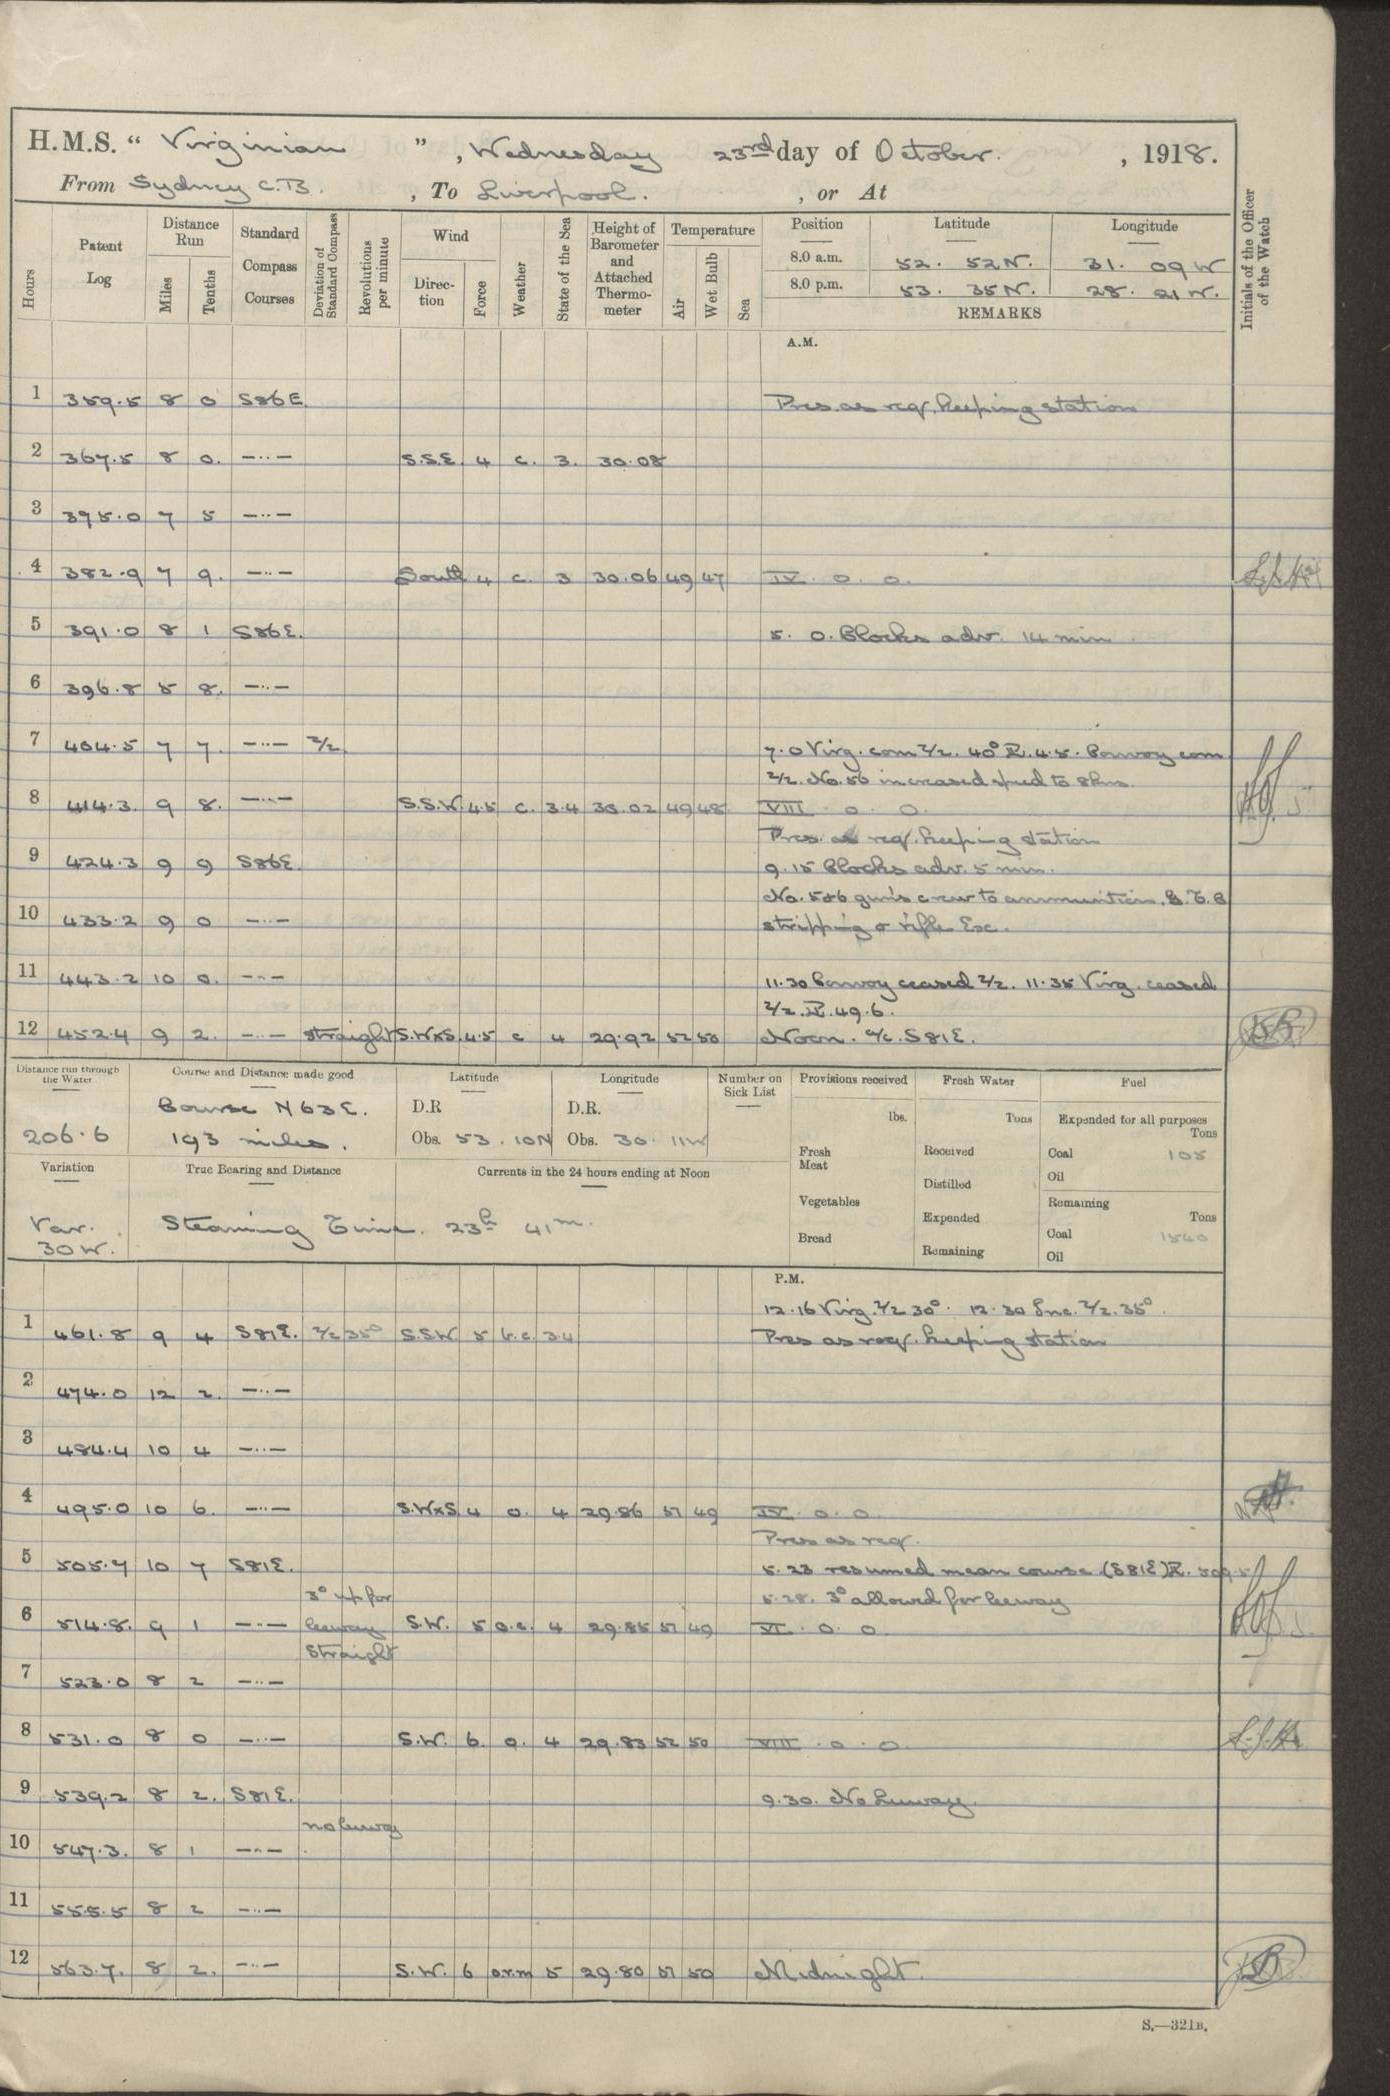 H.M.S. “ Virginian ” , Wednesday 23rd day of October. , 1918.
From Sydney C.B. , To Liverpool. , or At
Hours
Patent Log
Distance Run
Miles
Tenths
Standard Compass Courses
Deviation of Standard Compass
Revolutions per minute
Wind
Direction
Force
Weather
State of the Sea
Height of Barometer and Attached Thermometer
Temperature
Air
Wet Bulb
Sea
Position Latitude Longitude
8.0 a.m. 52. 52N. 31. 09W
8.0 p.m. 53. 35N. 28. 21W.
REMARKS
Initials of the Officer of the Watch
A.M.
1 359.5 8 0 S86E. Pres. as req. keeping station
2 367.5 8 0. —··— S.S.E. 4 c. 3. 30.08
3 375.0 7 5 —··—
4 382.9 7 9. —··— South 4 c. 3 30.06 49 47 IV. 0. 0.
5 391.0 8 1 S86E. 5. 0. Clocks adv. 14 min
6 396.8 5 8. —··—
7 404.5 7 7. —··— Z/z 7.0 Virg. com Z/z. 40° R.4.5. Convoy com
Z/z. No.50 increased speed to 8kns.
8 414.3. 9 8. —··— S.S.W. 4.5 c. 3.4 30.02 49 48 VIII 0. 0.
Pres. as req. keeping station
9 424.3 9 9 S86E. 9.15 Clocks adv. 5 min.
No. 5&6 gun's crew to ammunition.
10 433.2 9 0 —··— stripping & rifle Exc.
11 443.2 10 0. —··— 11.30 Convoy ceased Z/z. 11.35 Virg. ceased
Z/z. R.49.6.
12 452.4 9 2. —··— straight S.WxS. 4.5 c 4 29.92 52 50 Noon. a/c. S81E.
Distance run through the Water
206.6
Course and Distance made good
Course N63E.
193 miles.
Latitude
D.R
Obs. 53. 10N
Longitude
D.R.
Obs. 30. 11W
Number on Sick List
Provisions received
lbs.
Fresh Meat
Vegetables
Bread
Fresh Water
Tons
Received
Distilled
Expended
Remaining
Fuel
Expended for all purposes
Tons
Coal 105
Oil
Remaining
Tons
Coal 1540
Oil
Variation
Var. 30W.
True Bearing and Distance
Currents in the 24 hours ending at Noon
Steaming Time. 23h 41m.
P.M.
12.16 Virg. Z/z 30°. 12.30 Inc. Z/z. 35°.
1 461.8 9 4 S81E. Z/z 35° S.S.W. 5 b.c. 3.4 Pres as req. keeping station
2 474.0 12 2. —··—
3 484.4 10 4 —··—
4 495.0 10 6. —··— S.WxS. 4 o. 4 29.86 51 49 IV. 0. 0
Pres as req.
5 505.7 10 7 S81E. 5.23 resumed mean course (S81E) R. 509.5
3° up for 5.28. 3° allowed for leeway
6 514.8. 9 1 —··— leeway S.W. 5 o.c. 4 29.85 51 49 VI. 0. 0
straight
7 523.0 8 2 —··—
8 531.0 8 0 —··— S.W. 6. o. 4 29.83 52 50 VIII. 0. 0
9 539.2 8 2. S81E. 9.30. No Leeway.
no leeway
10 547.3. 8 1 —··—
11 555.5 8 2 —··—
12 563.7. 8 2. —··— S.W. 6 o.r.m 5 29.80 51 50 Midnight.
S.—321B.